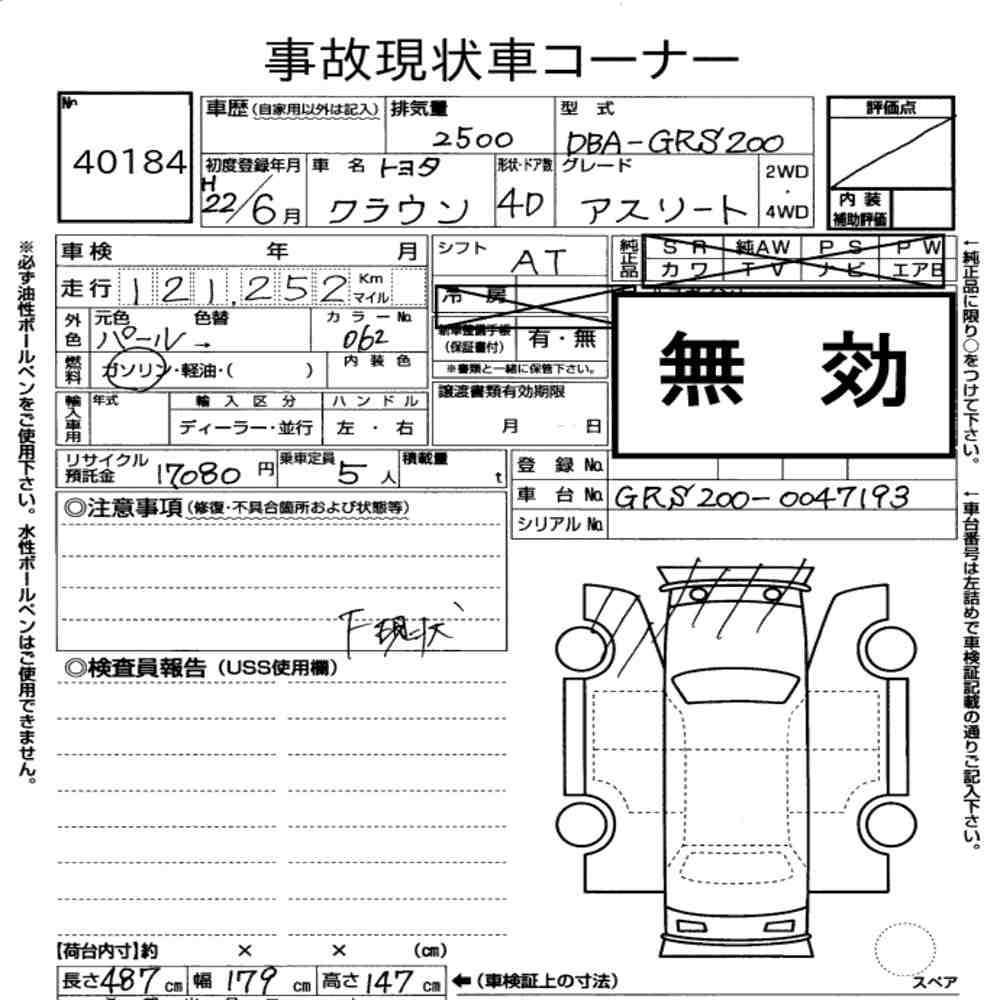 事故現状車コーナー
No.
40184
車歴 (自家用以外は記入)
排気量
2500
型 式
DBA-GRS200
評価点
初度登録年月
H
22/6月
車 名 トヨタ
クラウン
形状・ドア数
4D
グレード
アスリート
2WD
・
4WD
内 装
補助評価
車検 年 月
シフト
AT
純正品
S R 純AW P S P W
カワ T V ナビ エアB
走行 121,252 Km
マイル
冷 房
外色
元色 色替
パール→
カラーNo.
062
新車整備手帳
(保証書付)
有・無
無 効
燃料
ガソリン・軽油・( )
内 装 色
※書類と一緒に保管下さい。
輸入車用
年式
輸 入 区 分
ディーラー・並行
ハ ン ド ル
左 ・ 右
譲渡書類有効期限
月 日
リサイクル
預託金
17080 円
乗車定員
5 人
積載量
t
登 録 No.
車 台 No. GRS200-0047193
シリアル No.
◎注意事項 (修復・不具合箇所および状態等)
下現状
◎検査員報告 (USS使用欄)
【荷台内寸】約 × × (cm)
長さ487cm 幅 179 cm 高さ147 cm ←(車検証上の寸法)
スペア
※必ず油性ボールペンをご使用下さい。水性ボールペンはご使用できません。
←純正品に限り○をつけて下さい。
←車台番号は左詰めで車検証記載の通りご記入下さい。